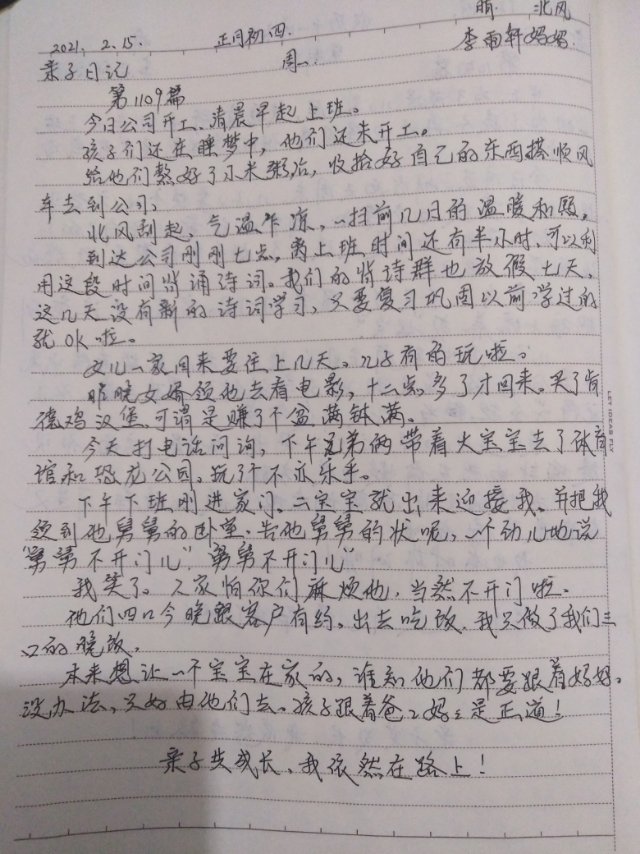 晴 北风
2021. 2. 15. 正月初四. 李雨轩妈妈.
亲子日记 周一.
第1109篇
今日公司开工、清晨早起上班。
孩子们还在睡梦中，他们还未开工。
给他们熬好了小米粥后，收拾好自己的东西搭顺风
车去到公司。
北风刮起，气温乍凉，一扫前几日的温暖和煦。
到达公司刚刚七点，离上班时间还有半小时，可以利
用这段时间背诵诗词。我们的背诗群也放假七天，
这几天没有新的诗词学习，只要复习巩固以前学过的
就OK啦。
女儿一家回来要住上几天。儿子有的玩啦。
昨晚女婿领他去看电影，十二点多了才回来。买了肯
德鸡汉堡，可谓是赚了个盆满钵满。
今天打电话问询，下午兄弟俩带着大宝宝去了体育
馆和恐龙公园。玩个不亦乐乎。
下午下班刚进家门、二宝宝就出来迎接我、并把我
领到他舅舅的卧室、告他舅舅的状呢，一个劲儿地说
“舅舅不开门儿”，“舅舅不开门儿”
我笑了。人家怕你们麻烦他，当然不开门啦。
他们四口今晚跟客户有约。出去吃饭，我只做了我们三
口的晚饭。
本来想让一个宝宝在家的，谁知他们都要跟着妈妈。
没办法，只好由他们去。孩子跟着爸爸妈妈是正道！
亲子共成长、我依然在路上！